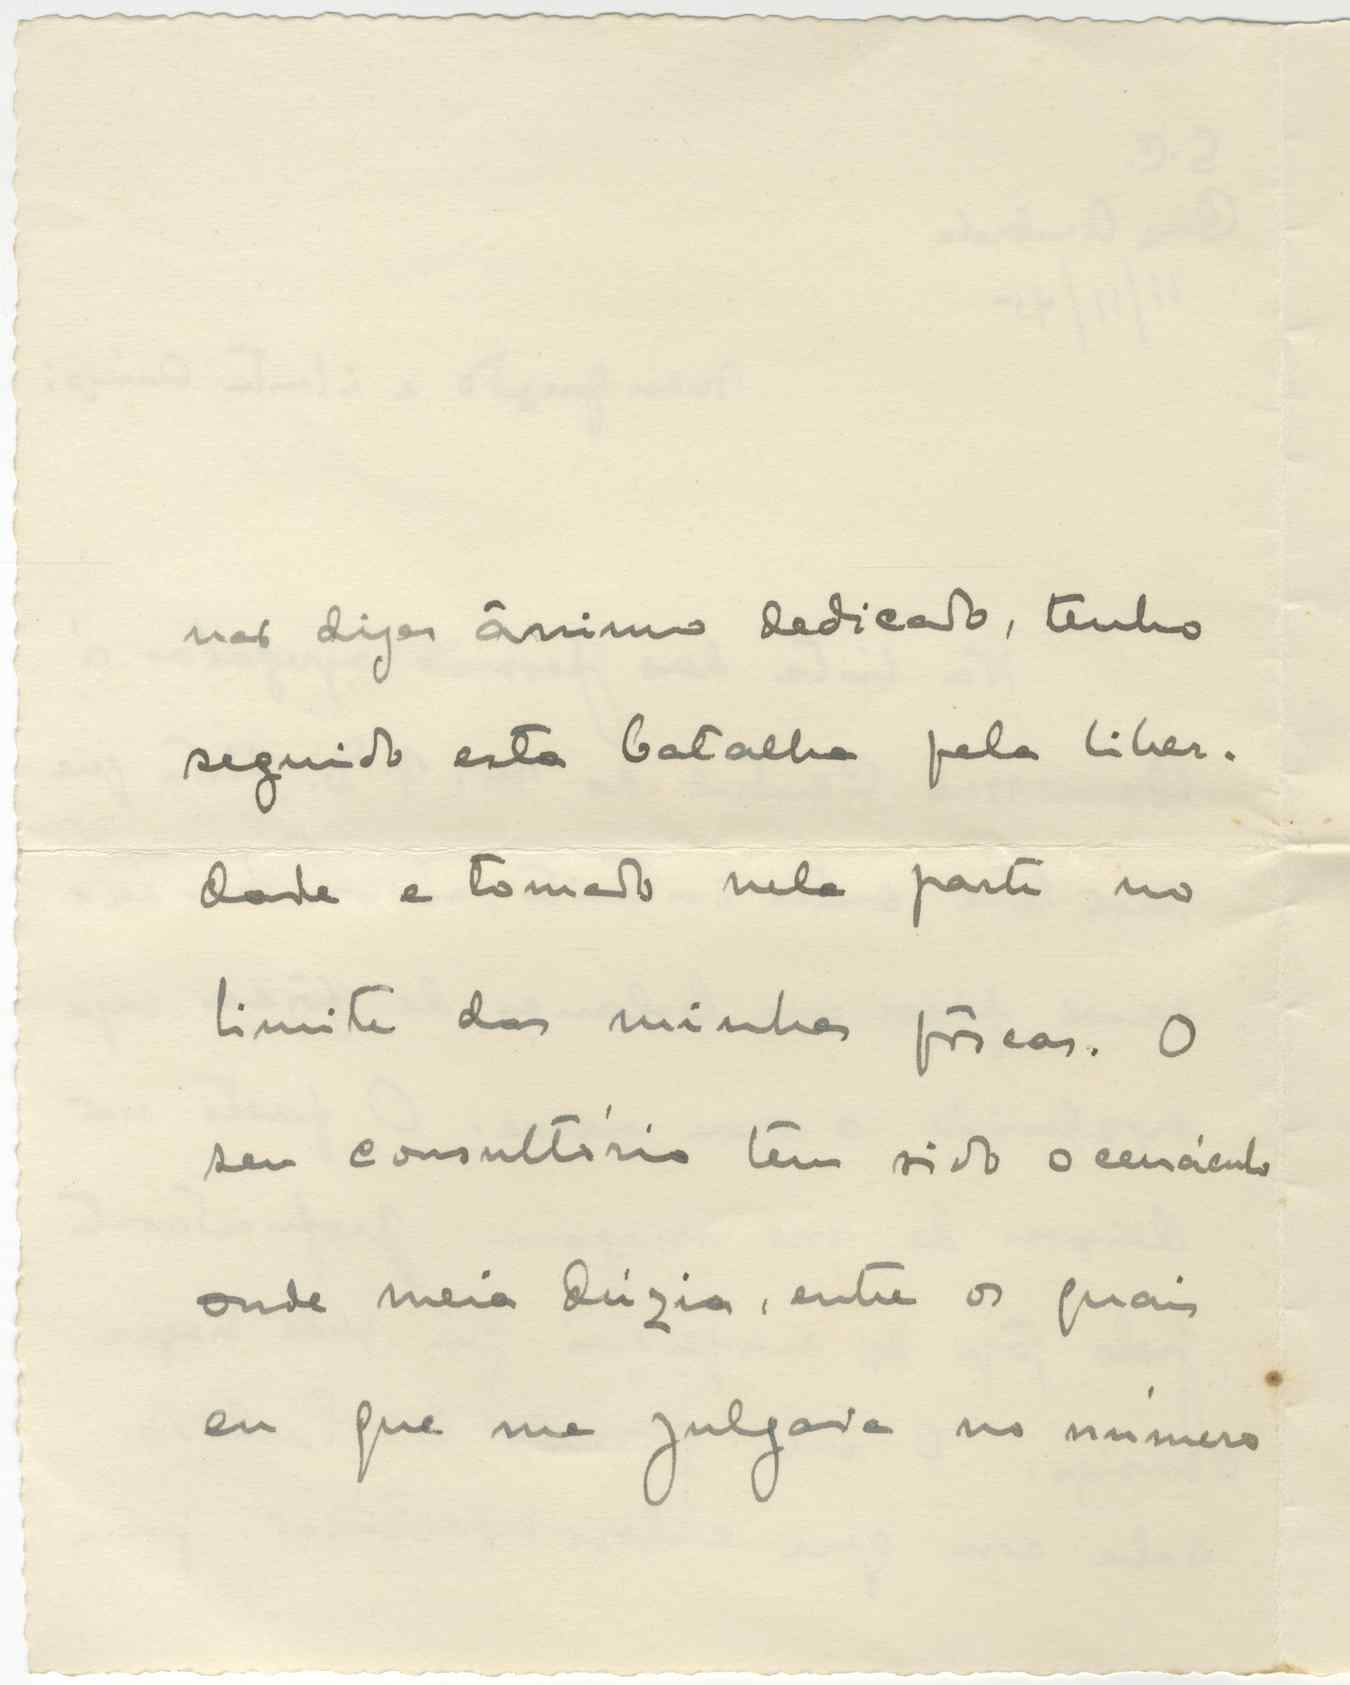 nas diges ânimo dedicado, tenho
seguido esta batalha pela liber-
dade e tomado nela parte no
limite das minhas fôrças. O
seu consultório tem sido o cenáculo
onde meia dúzia, entre os quais
eu que me julgava no número